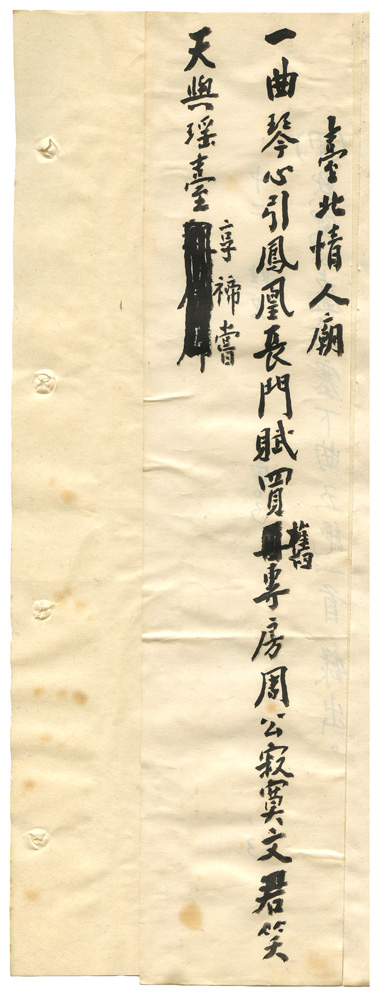 臺北情人廟
一曲琴心引鳳凰長門賦買舊專房周公寂寞文君笑
天與瑤臺享禘嘗